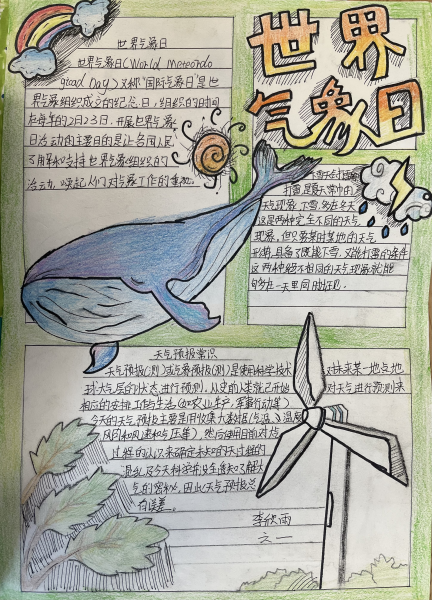 世界
气象日
世界气象日
世界气象日(World Meteorolo
gical Day)又称"国际气象日"是世
界气象组织成立的纪念日,组织的时间
在每年的2月23日.开展世界气象
日活动的主要目的是让各国人民
了解和支持世界气象组织的
活动,唤起人们对气象工作的重视.
下雪天会打雷
打雷是夏天常有的
天气现象,下雪多在冬天
这是两种完全不同的天气
现象,但只要某时某地的天气
形势,具备了既能下雪,又能打雷的条件
这两种绝不相同的天气现象就能
够在一天里同时出现.
天气预报常识
天气预报(测)或气象预报(测)是使用科学技术对未来某一地点地
球大气层的状态进行预测.从史前人类就已开始对天气进行预测来
相应的安排工作与生活(如农业生产、军事行动等)
今天的天气预报主要是用收集大数据(气温、湿度
风向和风速和气压等)然后使用目前对大
过程的认识来确定未来的天气过程的
混乱及今天科学并没全能大了解大
气的密秘,因此天气预报总
有误差。
李欣雨
六一